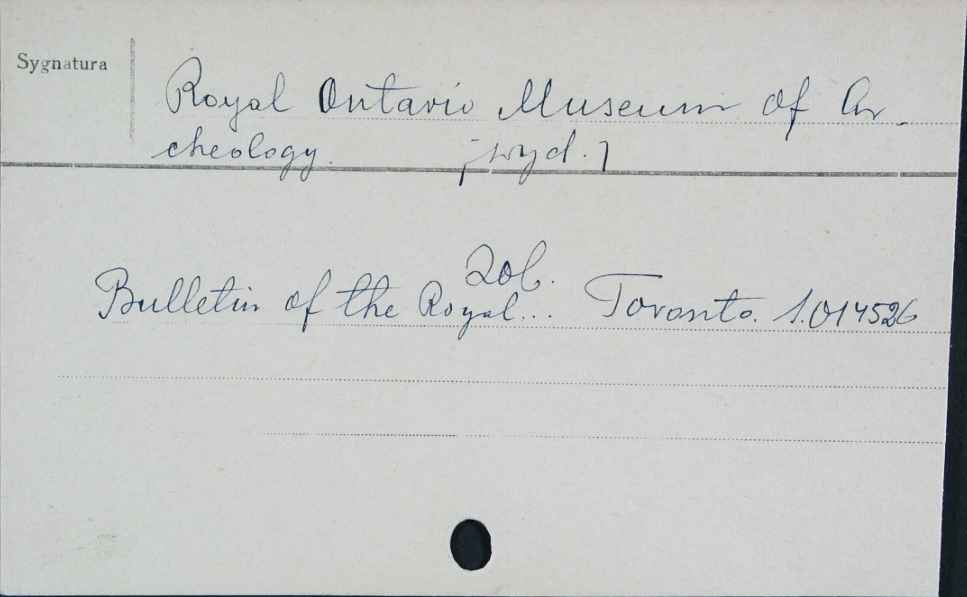 Sygnatura
Royal Ontario Museum of Ar-
cheology. [wyd.]
Zob.
Bulletin of the Royal... Toronto. 1.014526